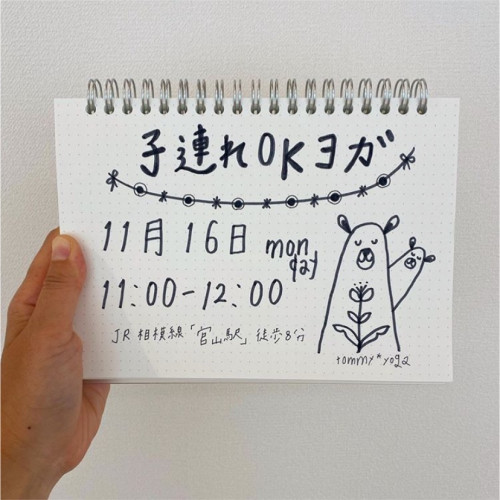 子連れOKヨガ
11月16日 monday
11:00-12:00
JR相模線「宮山駅」徒歩8分
tommy*yoga